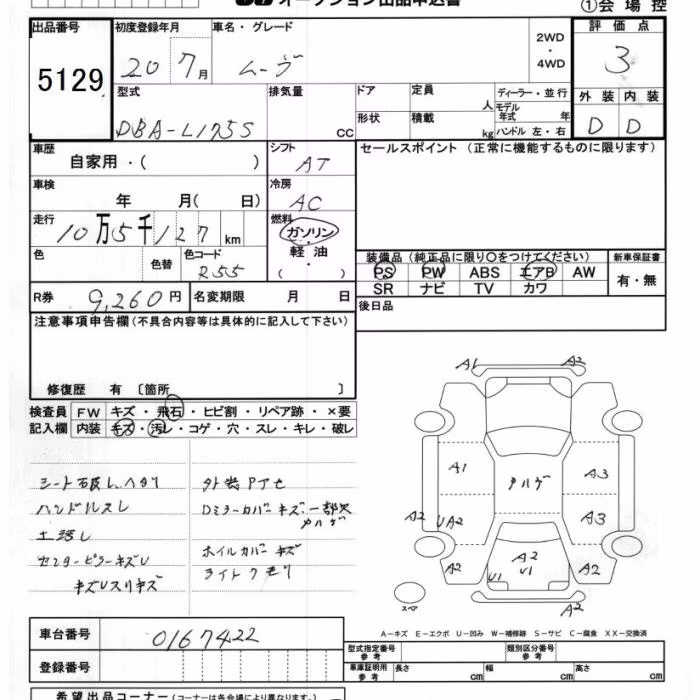 オークション出品申込書
①会場控
出品番号 初度登録年月 車名・グレード 評価点
5129 20 7月 ムーヴ 2WD・4WD 3
型式 排気量 ドア 定員 人 ディーラー・並行 外装 内装
モデル年式 年
DBA-L175S cc 形状 積載 kg ハンドル 左・右 D D
車歴 シフト セールスポイント (正常に機能するものに限ります)
自家用・( ) AT
車検 冷房
年 月( 日) AC
走行 燃料
10万5千127km ガソリン
色 色替 色コード 軽油
255 ・( )
装備品 (純正品に限り〇をつけてください) 新車保証書
PS PW ABS エアB AW 有・無
SR ナビ TV カワ
R券 9,260円 名変期限 月 日 後日品
注意事項申告欄 (不具合内容等は具体的に記入して下さい)
修復歴 有 〔箇所 〕
検査員 FW キズ・飛石・ヒビ割・リペア跡・×要
記入欄 内装 キズ・汚レ・コゲ・穴・スレ・キレ・破レ
シート
ハンドルスレ
センターピラーキズ
Dミラーカバーキズ、一部欠
ハゲ
ホイルカバーキズ
ライトクモリ
A1 A2
A1 ハゲ A3
A2 UA2 A3
A2 A2 U1 U1 A2
スペア A2
A-キズ E-エクボ U-凹み W-補修跡 S-サビ C-腐食 XX-交換済
車台番号 0167422
登録番号
型式指定番号 参考 類別区分番号 参考
車庫証明用 参考 長さ cm 幅 cm 高さ cm
希望出品コーナー (コーナーは各会場により異なります。)